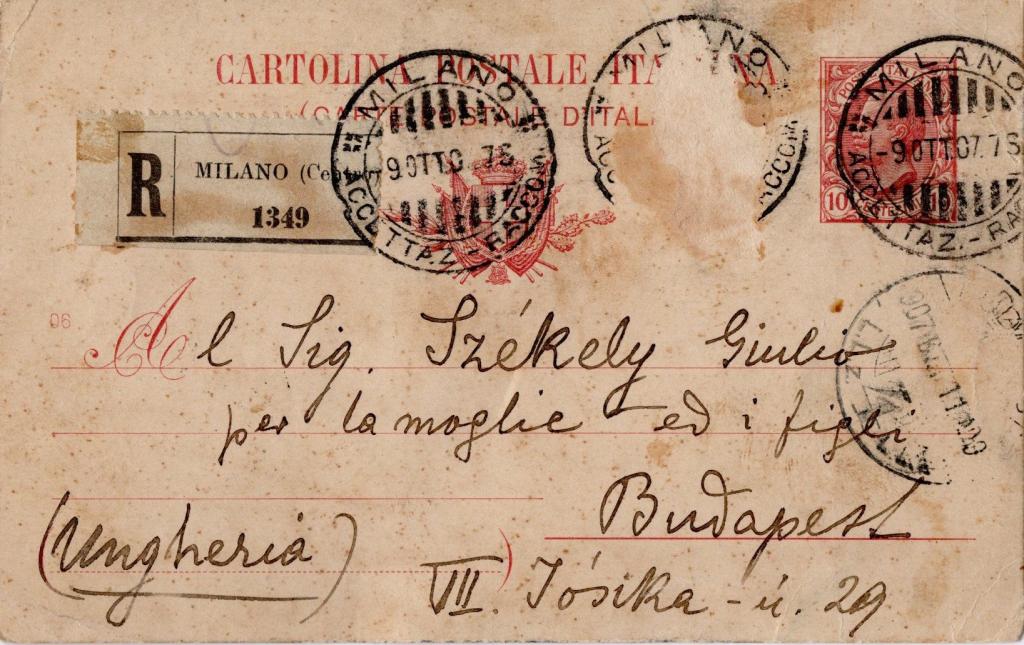 CARTOLINA POSTALE ITALIANA
(CARTE POSTALE D'ITAL
R
MILANO (Centro)
1349
MILANO
9 OTT.07. 7S
ACCETTAZ.-RACCOM
MILANO
ACCOM
MILANO
-9.OTT.07.7S
ACCETTAZ.-RA
10
06
Al Sig. Székely Giulio
per la moglie ed i figli
Budapest
(Ungheria)
VII. Jósika-ú. 29